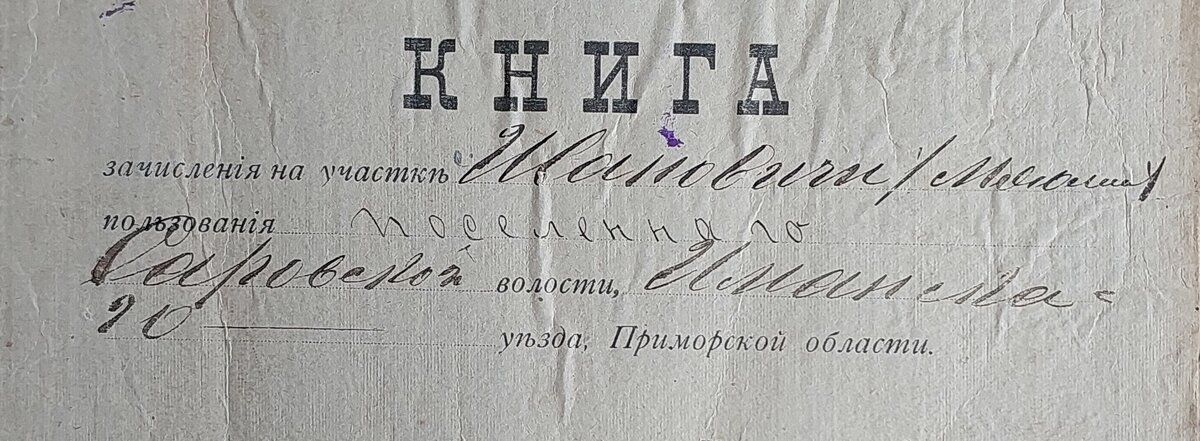 КНИГА
зачисленія на участкѣ Ивановичи
пользованія поселеннаго
Саровской волости, Иманска=
го уѣзда, Приморской области.